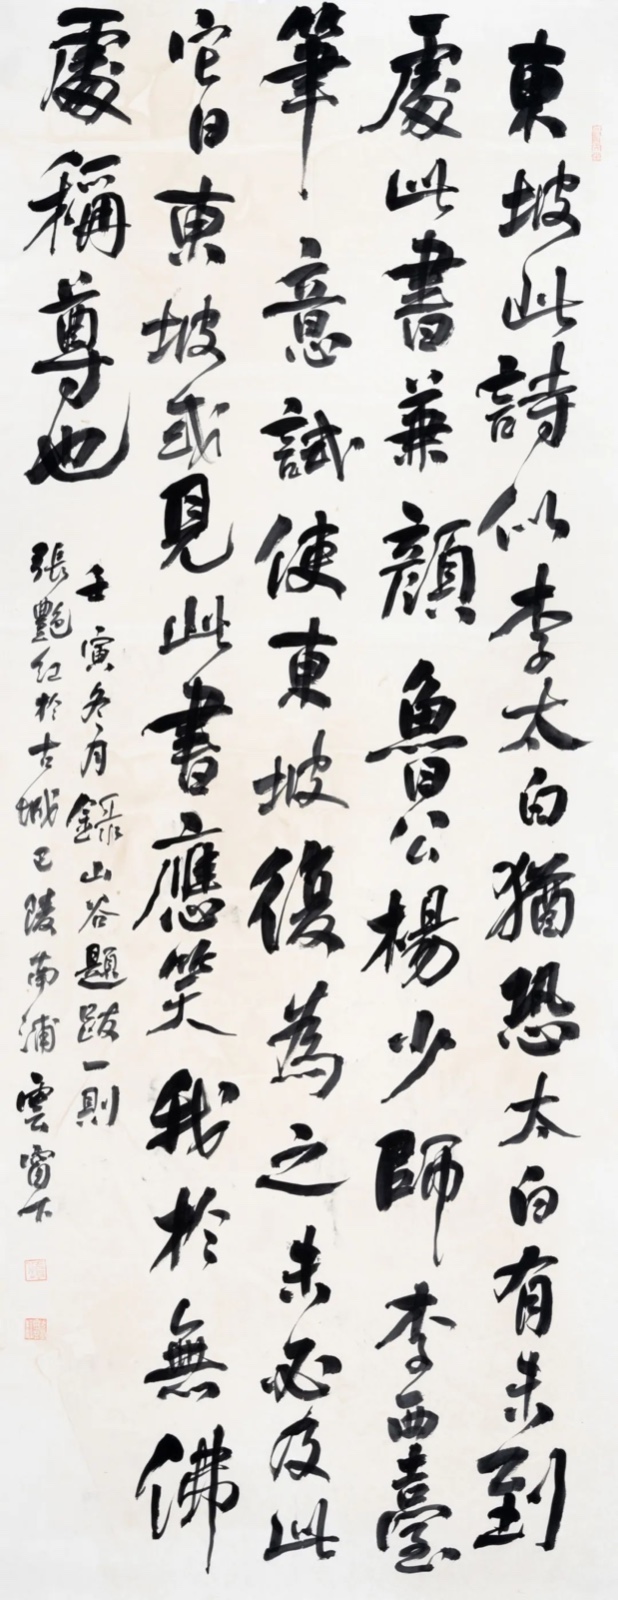 東坡此詩似李太白猶恐太白有未到
處此書兼顔魯公楊少師李西臺
筆意試使東坡復為之未必及此
它日東坡或見此書應笑我於無佛
處稱尊也
壬寅冬月錄山谷題跋一則
張艷紅於古城巴陵南浦雲窗下